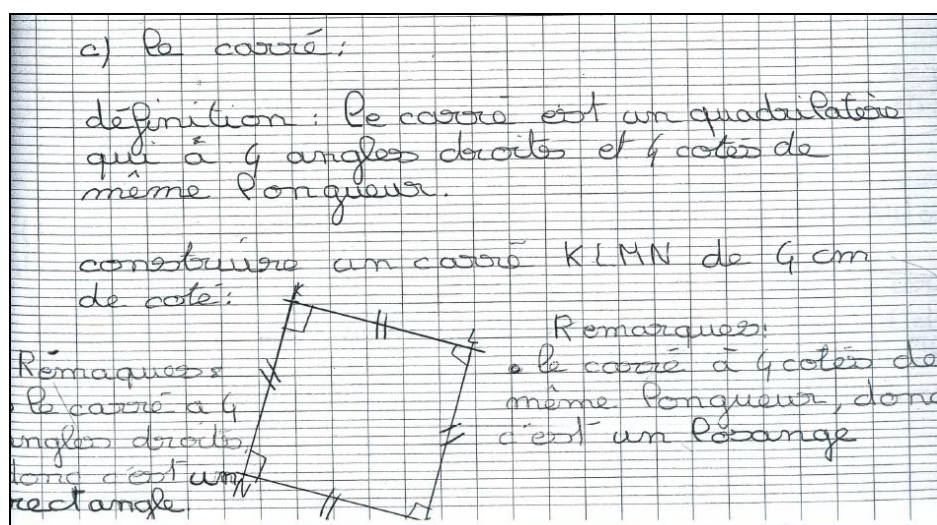 c) le carré:
définition: le carré est un quadrilatère
qui à 4 angles droits et 4 cotés de
même longueur.
construire un carré KLMN de 4 cm
de coté:
K
L
N
Rémaques:
• le carré a 4
angles droits,
donc c'est un
rectangle
Remarques:
• le carré à 4 cotés de
même longueur, donc
c'est un losange